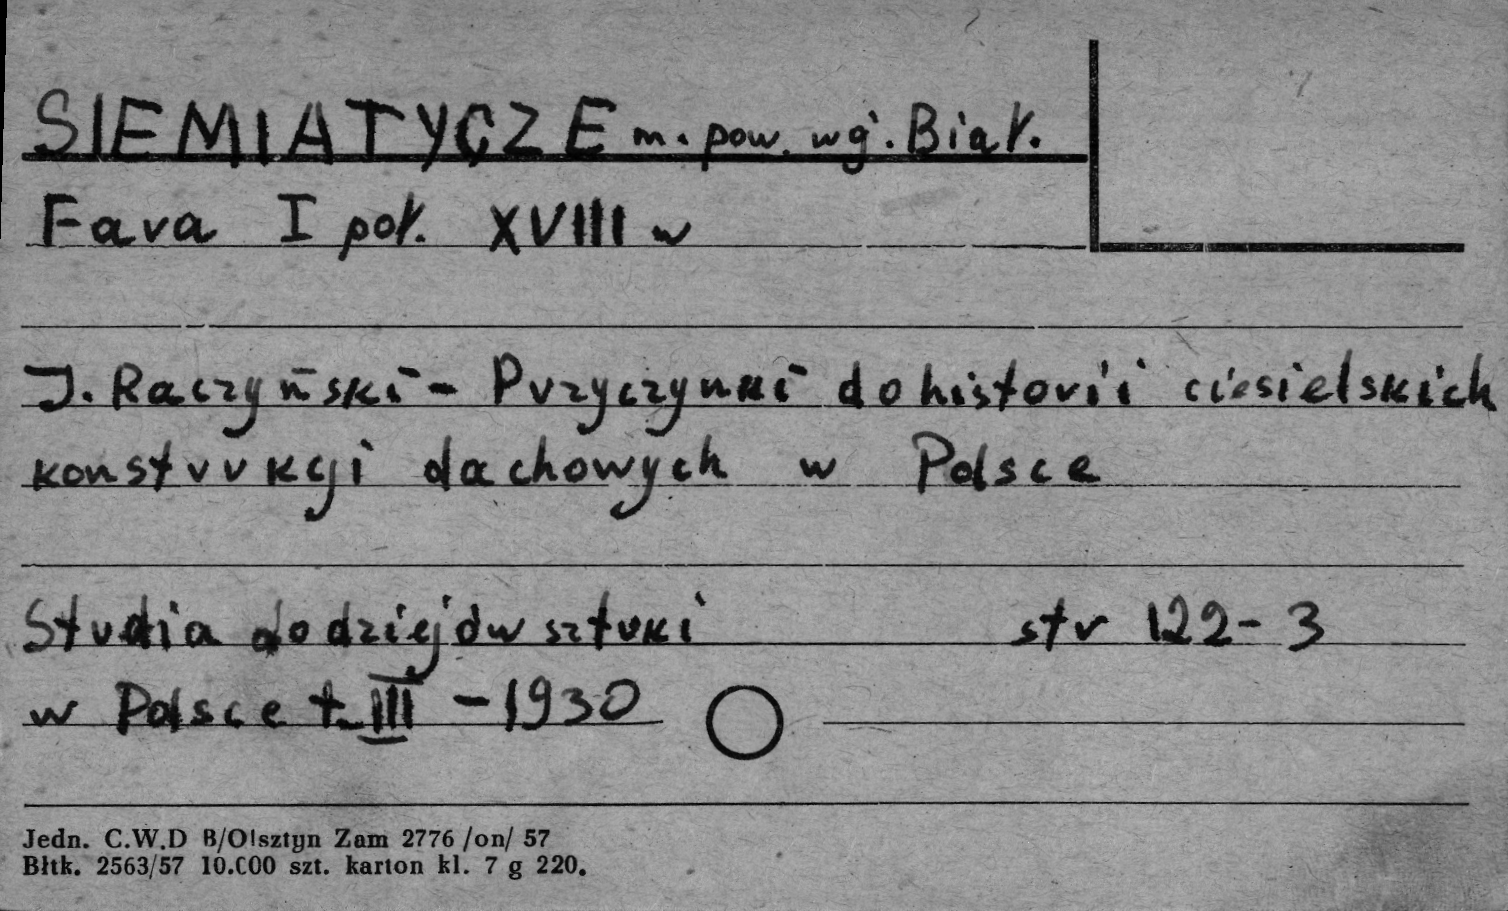 SIEMIATYCZE m. pow. wg. Biał.
Fara I poł. XVIII w
J. Raczyński - Przyczynki do historii ciesielskich
konstrukcji dachowych w Polsce
Studia do dziejów sztuki str 122-3
w Polsce t. III - 1930
Jedn. C.W.D B/Olsztyn Zam 2776 /on/ 57
Bltk. 2563/57 10.000 szt. karton kl. 7 g 220.